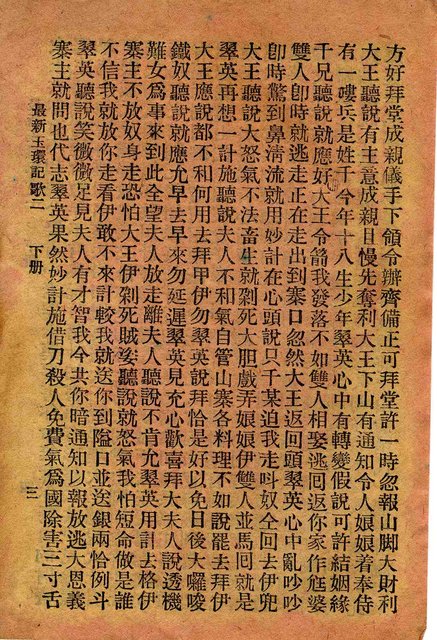 方好拜堂成親儀手下領令辦齊備正可拜堂許一時忽報山脚大財利
大王聽說有主意成親且慢先奪利大王下山有通知令人娘娘着奉侍
有一嘍兵是姓千今年十八生少年翠英心中有轉變假說可許結姻緣
千兄聽說就應好大王令䇲我發落不如雙人相娶逃回返你家作尫婆
雙人卽時就逃走正在走出到寨口忽然大王返回頭翠英心中亂吵吵
卽時驚到鼻淸流就用妙計在心頭說只千某迫我走呌奴仝回去伊兜
大王聽說大怒氣不法畜生就剁死大胆戲弄娘娘伊雙人並馬囘就是
翠英再想一計施聽說夫人不和氣自管山寨各料理不如說罷去拜伊
大王應說都不和何用去拜甲伊勿翠英說拜恰是好以免日後大囉唆
鐵奴聽說就應允早去早來勿延遲翠英見充心歡喜拜大夫人說透機
難女爲事來到此全望夫人放走離夫人聽說不肯允翠英用計去格伊
寨主不放奴身走恐怕大王伊剁死賊婆聽說就怒氣我怕短命做是誰
不信我就放你走看伊敢不來計較我就送你到隘口並送銀兩恰例斗
翠英聽說笑微微足見夫人有才智我今共你暗通知以報放逃大恩義
寨主就問也代志翠英果然妙計施借刀殺人免費氣爲國除害三寸舌
最新玉環記歌二 下册 三